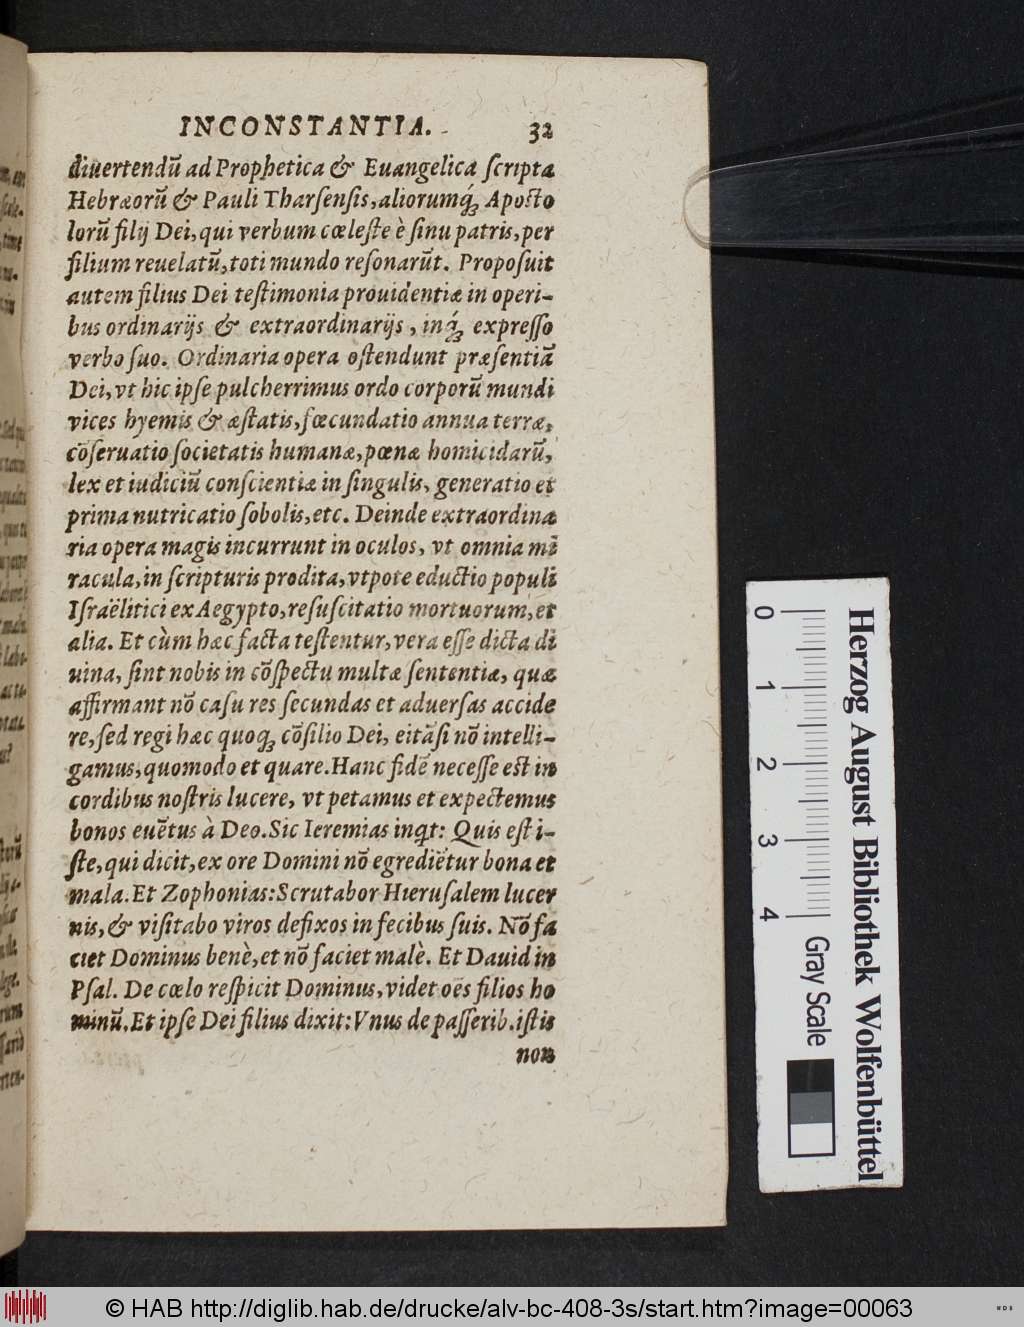 INCONSTANTIA. 32
diuertendũ ad Prophetica & Euangelica ſcripta
Hebræorũ & Pauli Tharſenſis, aliorumq́ꝫ Apoſto
lorũ filij Dei, qui verbum cœleſte è ſinu patris, per
filium reuelatũ, toti mundo reſonarũt. Propoſuit
autem filius Dei teſtimonia prouidentiæ in operi-
bus ordinarijs & extraordinarijs, inq́ꝫ expreſſo
verbo ſuo. Ordinaria opera oſtendunt præſentiã
Dei, vt hic ipſe pulcherrimus ordo corporũ mundi
vices hyemis & æſtatis, fœcundatio annua terræ,
cõſeruatio ſocietatis humanæ, pœnæ homicidarũ,
lex et iudiciũ conſcientiæ in ſingulis, generatio et
prima nutricatio ſobolis, etc. Deinde extraordina
ria opera magis incurrunt in oculos, vt omnia mi
racula, in ſcripturis prodita, vtpote eductio populi
Iſraëlitici ex Aegypto, reſuſcitatio mortuorum, et
alia. Et cùm hæc facta teſtentur, vera eſſe dicta di
uina, ſint nobis in cõſpectu multæ ſententiæ, quæ
affirmant nõ caſu res ſecundas et aduerſas accide
re, ſed regi hæc quoqꝫ cõſilio Dei, etiãſi nõ intelli-
gamus, quomodo et quare. Hanc fidẽ neceſſe eſt in
cordibus noſtris lucere, vt petamus et expectemus
bonos euẽtus à Deo. Sic Ieremias inqt: Quis eſt i-
ſte, qui dicit, ex ore Domini nõ egrediẽtur bona et
mala. Et Zophonias: Scrutabor Hieruſalem lucer
nis, & viſitabo viros defixos in fecibus ſuis. Nõ fa
ciet Dominus benè, et nõ faciet malè. Et Dauid in
Pſal. De cœlo reſpicit Dominus, videt oẽs filios ho
minũ. Et ipſe Dei filius dixit: Vnus de paſſerib. iſtis
non
Herzog August Bibliothek Wolfenbüttel
0 1 2 3 4 Gray Scale
© HAB http://diglib.hab.de/drucke/alv-bc-408-3s/start.htm?image=00063